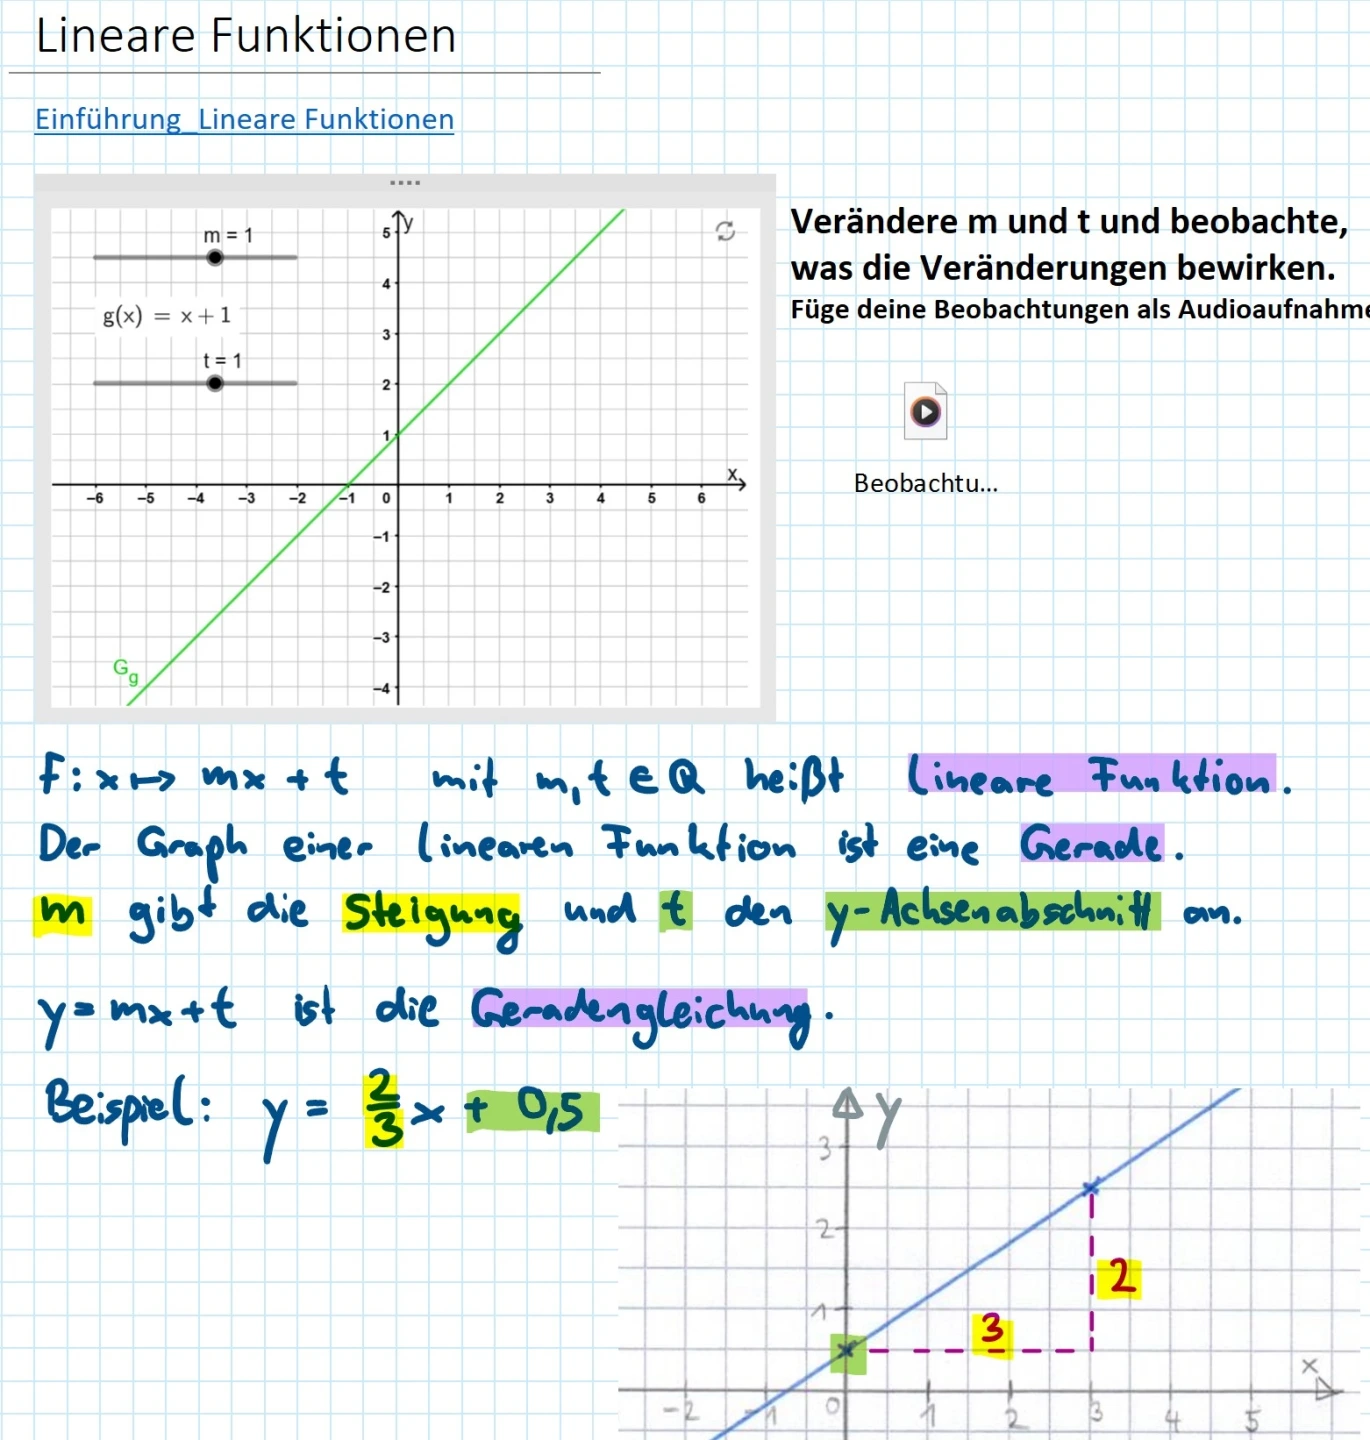 Lineare Funktionen
Einführung_Lineare Funktionen
m = 1
g(x) = x + 1
t = 1
y
5
4
3
2
1
x
−6 −5 −4 −3 −2 −1 0 1 2 3 4 5 6
−1
−2
−3
−4
G_g
Verändere m und t und beobachte,
was die Veränderungen bewirken.
Füge deine Beobachtungen als Audioaufnahme
Beobachtu...
f: x ↦ mx + t mit m, t ∈ ℚ heißt lineare Funktion.
Der Graph einer linearen Funktion ist eine Gerade.
m gibt die Steigung und t den y-Achsenabschnitt an.
y = mx + t ist die Geradengleichung.
Beispiel: y = 2/3 x + 0,5
y
3
2
1
2
3
x
−2 −1 0 1 2 3 4 5